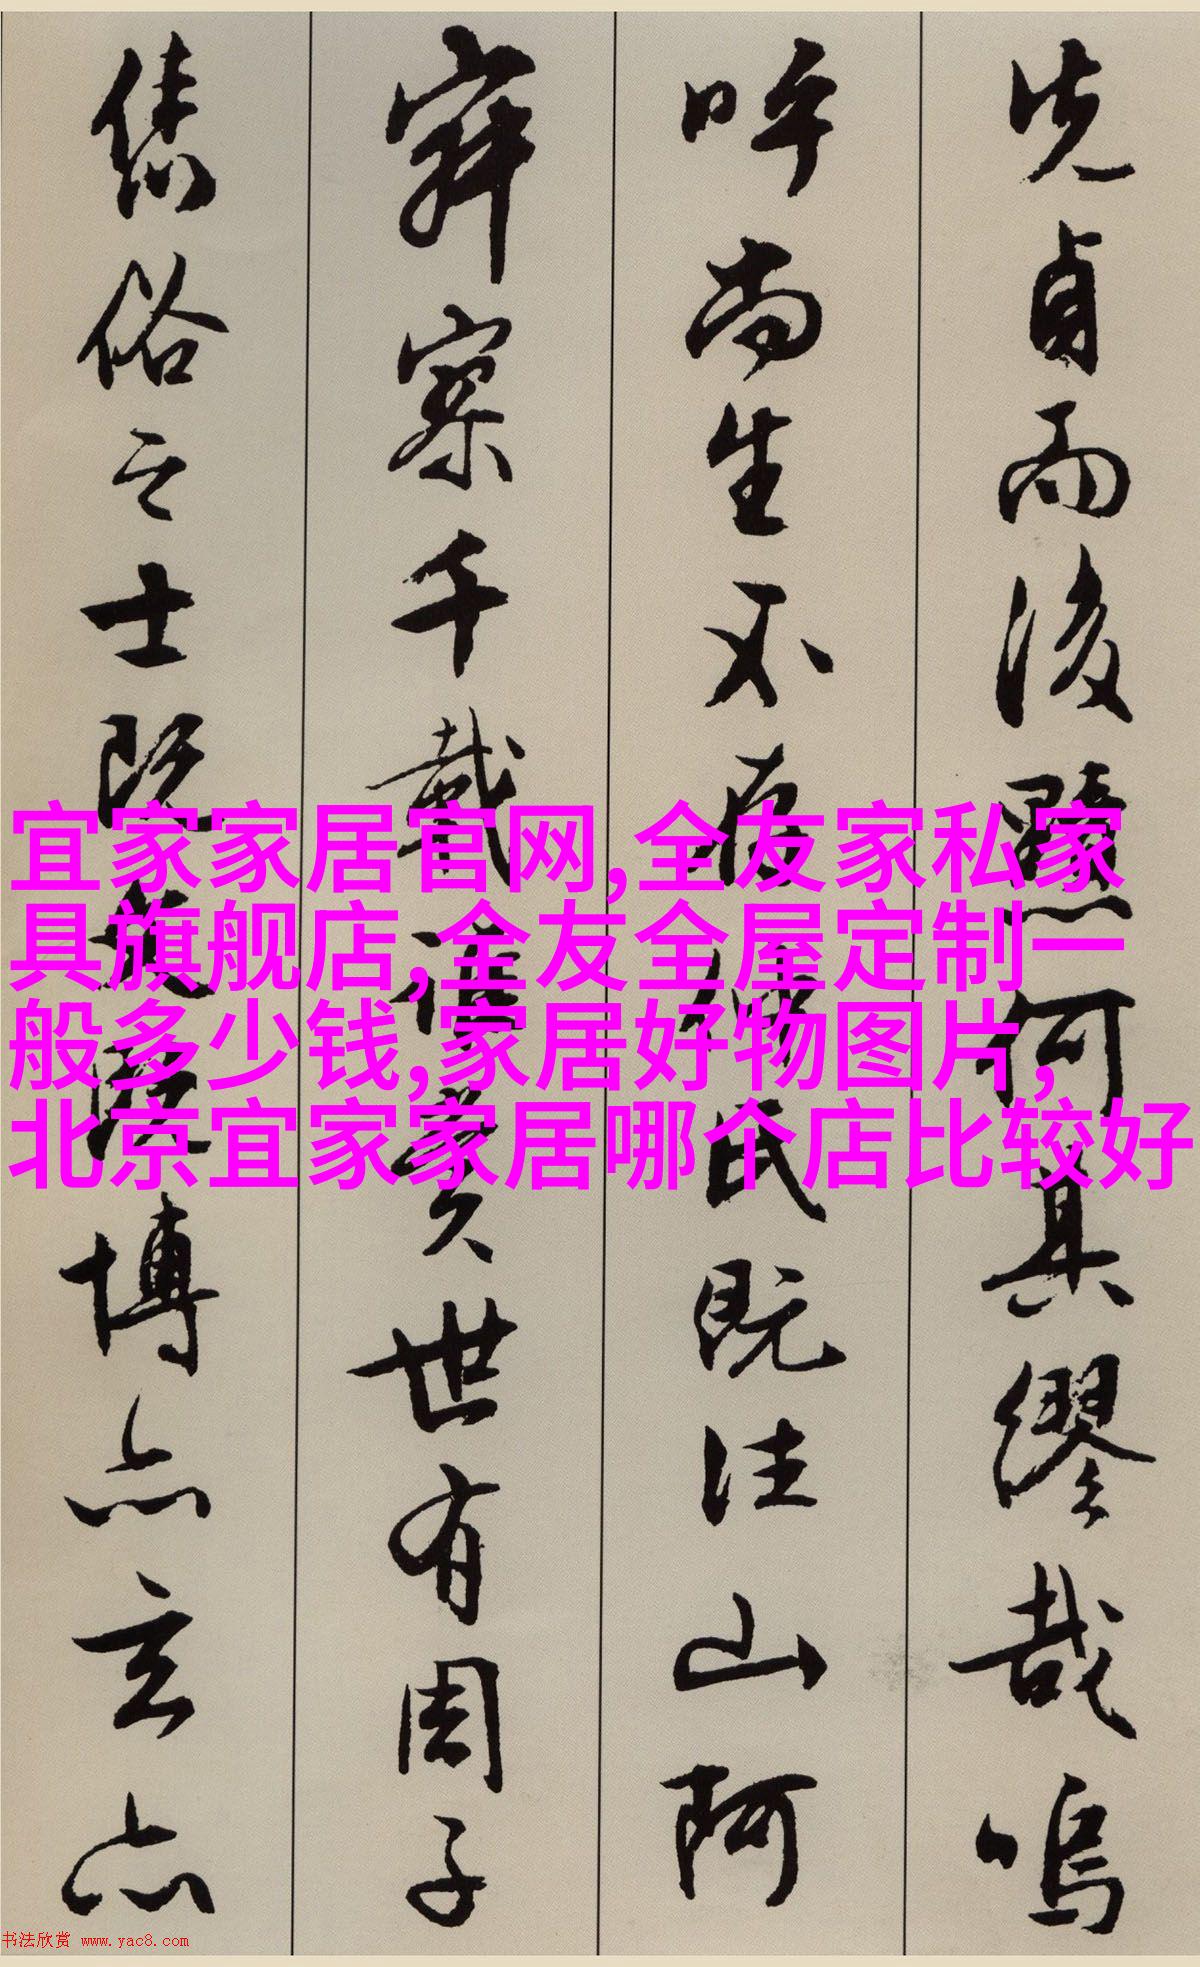 先貞而後黷何其繆哉嗚
呼尚生不存仲氏既往山阿
寂寥千載誰賞世有周子
儁俗之士既文既博亦玄亦
宜家家居官网,全友家私家
具旗舰店,全友全屋定制一
般多少钱,家居好物图片,
北京宜家家居哪个店比较好
书法欣赏 www.yac8.com